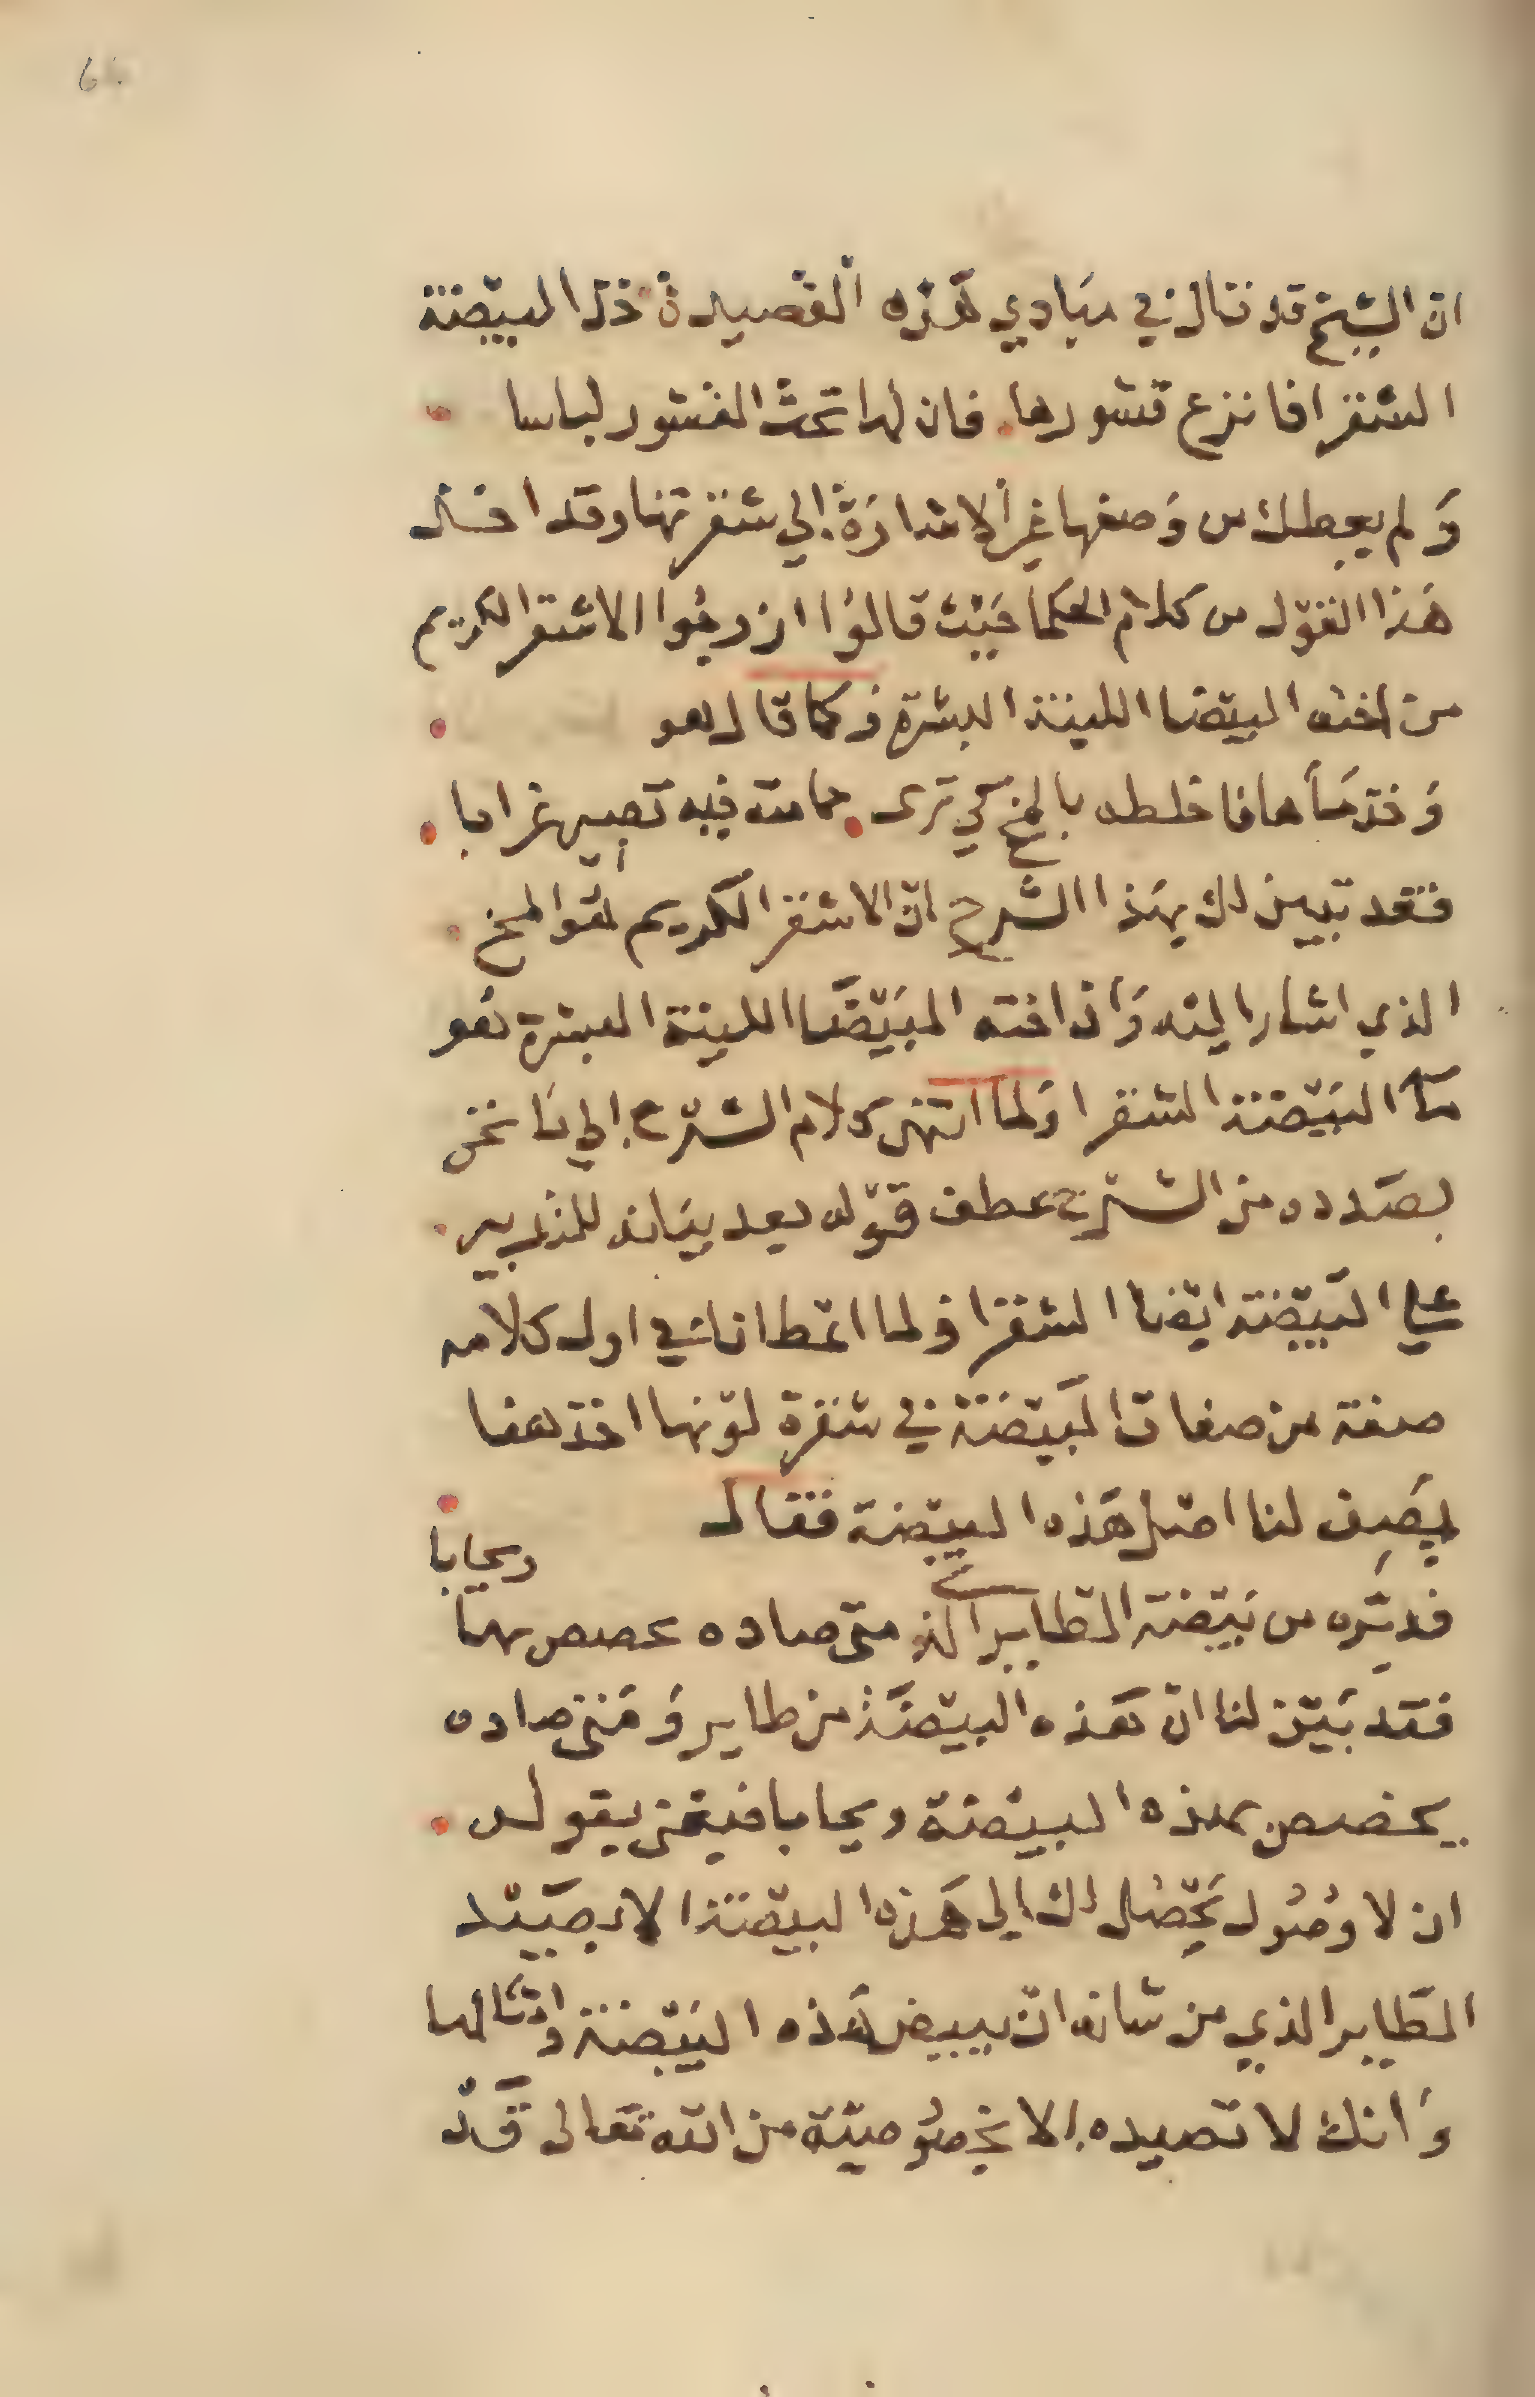 ان الشيخ قد قال في مبادي هذه القصيدة خذ البيضة
الشقرا فانزع قشورها فان لها تحت القشور لباسا
ولم يعطك من وصفها غير الاشارة الي شقرتها وقد اخذ
هذا القول من كلام الحكما حيث قالوا ازوجوا الاشقر الكريم
من اخته البيضا اللينة البشرة فكما قال هو
وخذ ماها فاخلطه بالمخ كي تري حمامته فيه تصير غرابا
فقد تبين لك بهذا الشرح ان الاشقر الكريم هو المخ
الذي اشار اليه وان اخته البيضا اللينة البشرة هو
ماء البيضة الشقرا ولما انتهى كلام الشرح الي ما نحن
بصدده من الشرح عطف قوله بعد بيانه للتدبير
علي البيضة ايضا الشقرا ولما اعطانا في اول كلامه
صفة من صفات البيضة في شقرة لونها اخذ هنا
يصف لنا اصل هذه البيضة فقال
فدبره من بيضة الطاير الذي متي صاده يخصص بها
ويحابا
فقد بين لنا ان هذه البيضة من طاير ومتي صاده
يخصص بهذه البيضة ويحابا فيعني بقول
ان لا وصول يحصل لك الي هذه البيضة الا بصيد
الطاير الذي من شانه ان يبيض هذه البيضة وامثالها
وانك لا تصيده الا بخصوصية من الله تعالى قد